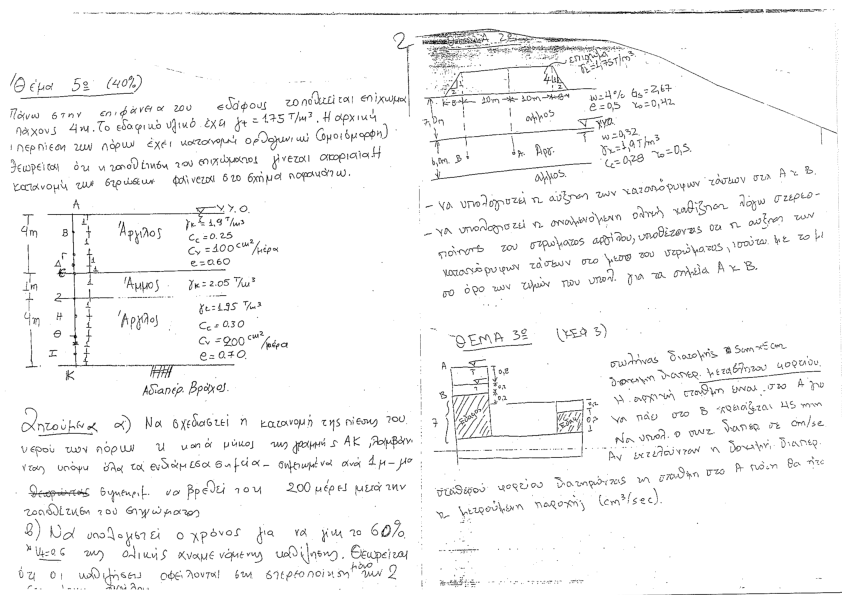 Θέμα 5º (40%)
Πάνω στην επιφάνεια του εδάφους τοποθετείται επίχωμα
πάχους 4m. Το εδαφικό υλικό έχει γt = 1.75 T/m³. Η αρχική
υπερπίεση των πόρων έχει κατανομή ορθογωνική (ομοιόμορφη)
Θεωρείται ότι η τοποθέτηση του επιχώματος γίνεται ακαριαία. Η
κατανομή των στρώσεων φαίνεται στο σχήμα παρακάτω.
A
Υ.Υ.Ο.
4m
B
Γ
Δ
E
Άργιλος
γκ = 1.9 T/m³
Cc = 0.25
Cv = 100 cm²/μέρα
e = 0.60
1m
Άμμος
γκ = 2.05 T/m³
Ζ
4m
Η
Θ
Ι
Κ
Άργιλος
γκ = 1.95 T/m³
Cc = 0.30
Cv = 200 cm²/μέρα
e = 0.70
Αδιαπέρ. Βράχος.
Ζητούμενα α) Να σχεδιαστεί η κατανομή της πίεσης του
νερού των πόρων κατά μήκος της γραμμής ΑΚ λαμβάνο-
ντας υπόψη όλα τα ενδιάμεσα σημεία - σημειωμένα ανά 1μ -
συγκεκριμ. να βρεθεί τους 200 μέρες μετά την
τοποθέτηση του επιχώματος
β) Να υπολογιστεί ο χρόνος για να γίνει το 60%
U=0.6 της ολικής αναμενόμενης καθίζησης. Θεωρείται
ότι οι καθιζήσεις οφείλονται στη στερεοποίηση μόνο των 2
2
επίχωμα
γt=1,75T/m³
10m
10m
7,0m
άμμος
w=4% Gs=2,67
e=0,5
6,0m
B
A
Αργ.
w=0,32
γκ=1,9T/m³
Cc=0,28
άμμος.
- να υπολογιστεί η αύξηση των κατακόρυφων τάσεων στα Α κ Β.
- να υπολογιστεί η αναμενόμενη ολική καθίζηση λόγω στερεο-
ποίησης του στρώματος αργίλου, υποθέτοντας ότι η αύξηση των
κατακόρυφων τάσεων στο μέσο του στρώματος, ισούται με το μέ
σο όρο των τιμών που υπολ. για τα σημεία Α κ Β.
ΘΕΜΑ 3º (ΚΕΦ 3)
A
B
7
0,8
0,2
0,2
έδαφος
σωλήνας διατομής 5cm×5cm
δοκιμή διαπερ. μεταβλητού φορτίου.
Η αρχική στάθμη είναι στο Α για
να πάει στο Β χρειάζεται 45 min
Να υπολ. ο συντ. διαπερ σε cm/sec
Αν εκτελούνταν η δοκιμή διαπερ.
σταθερού φορτίου διατηρώντας τη στάθμη στο Α ποιη θα ήτα
η μετρούμενη παροχής (cm³/sec).